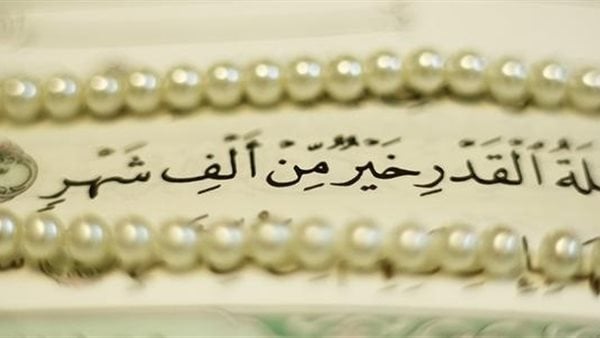 ـلَةُ ٱلْقَدْرِ خَيْرٌ مِّنْ أَلْفِ شَهْرٍ